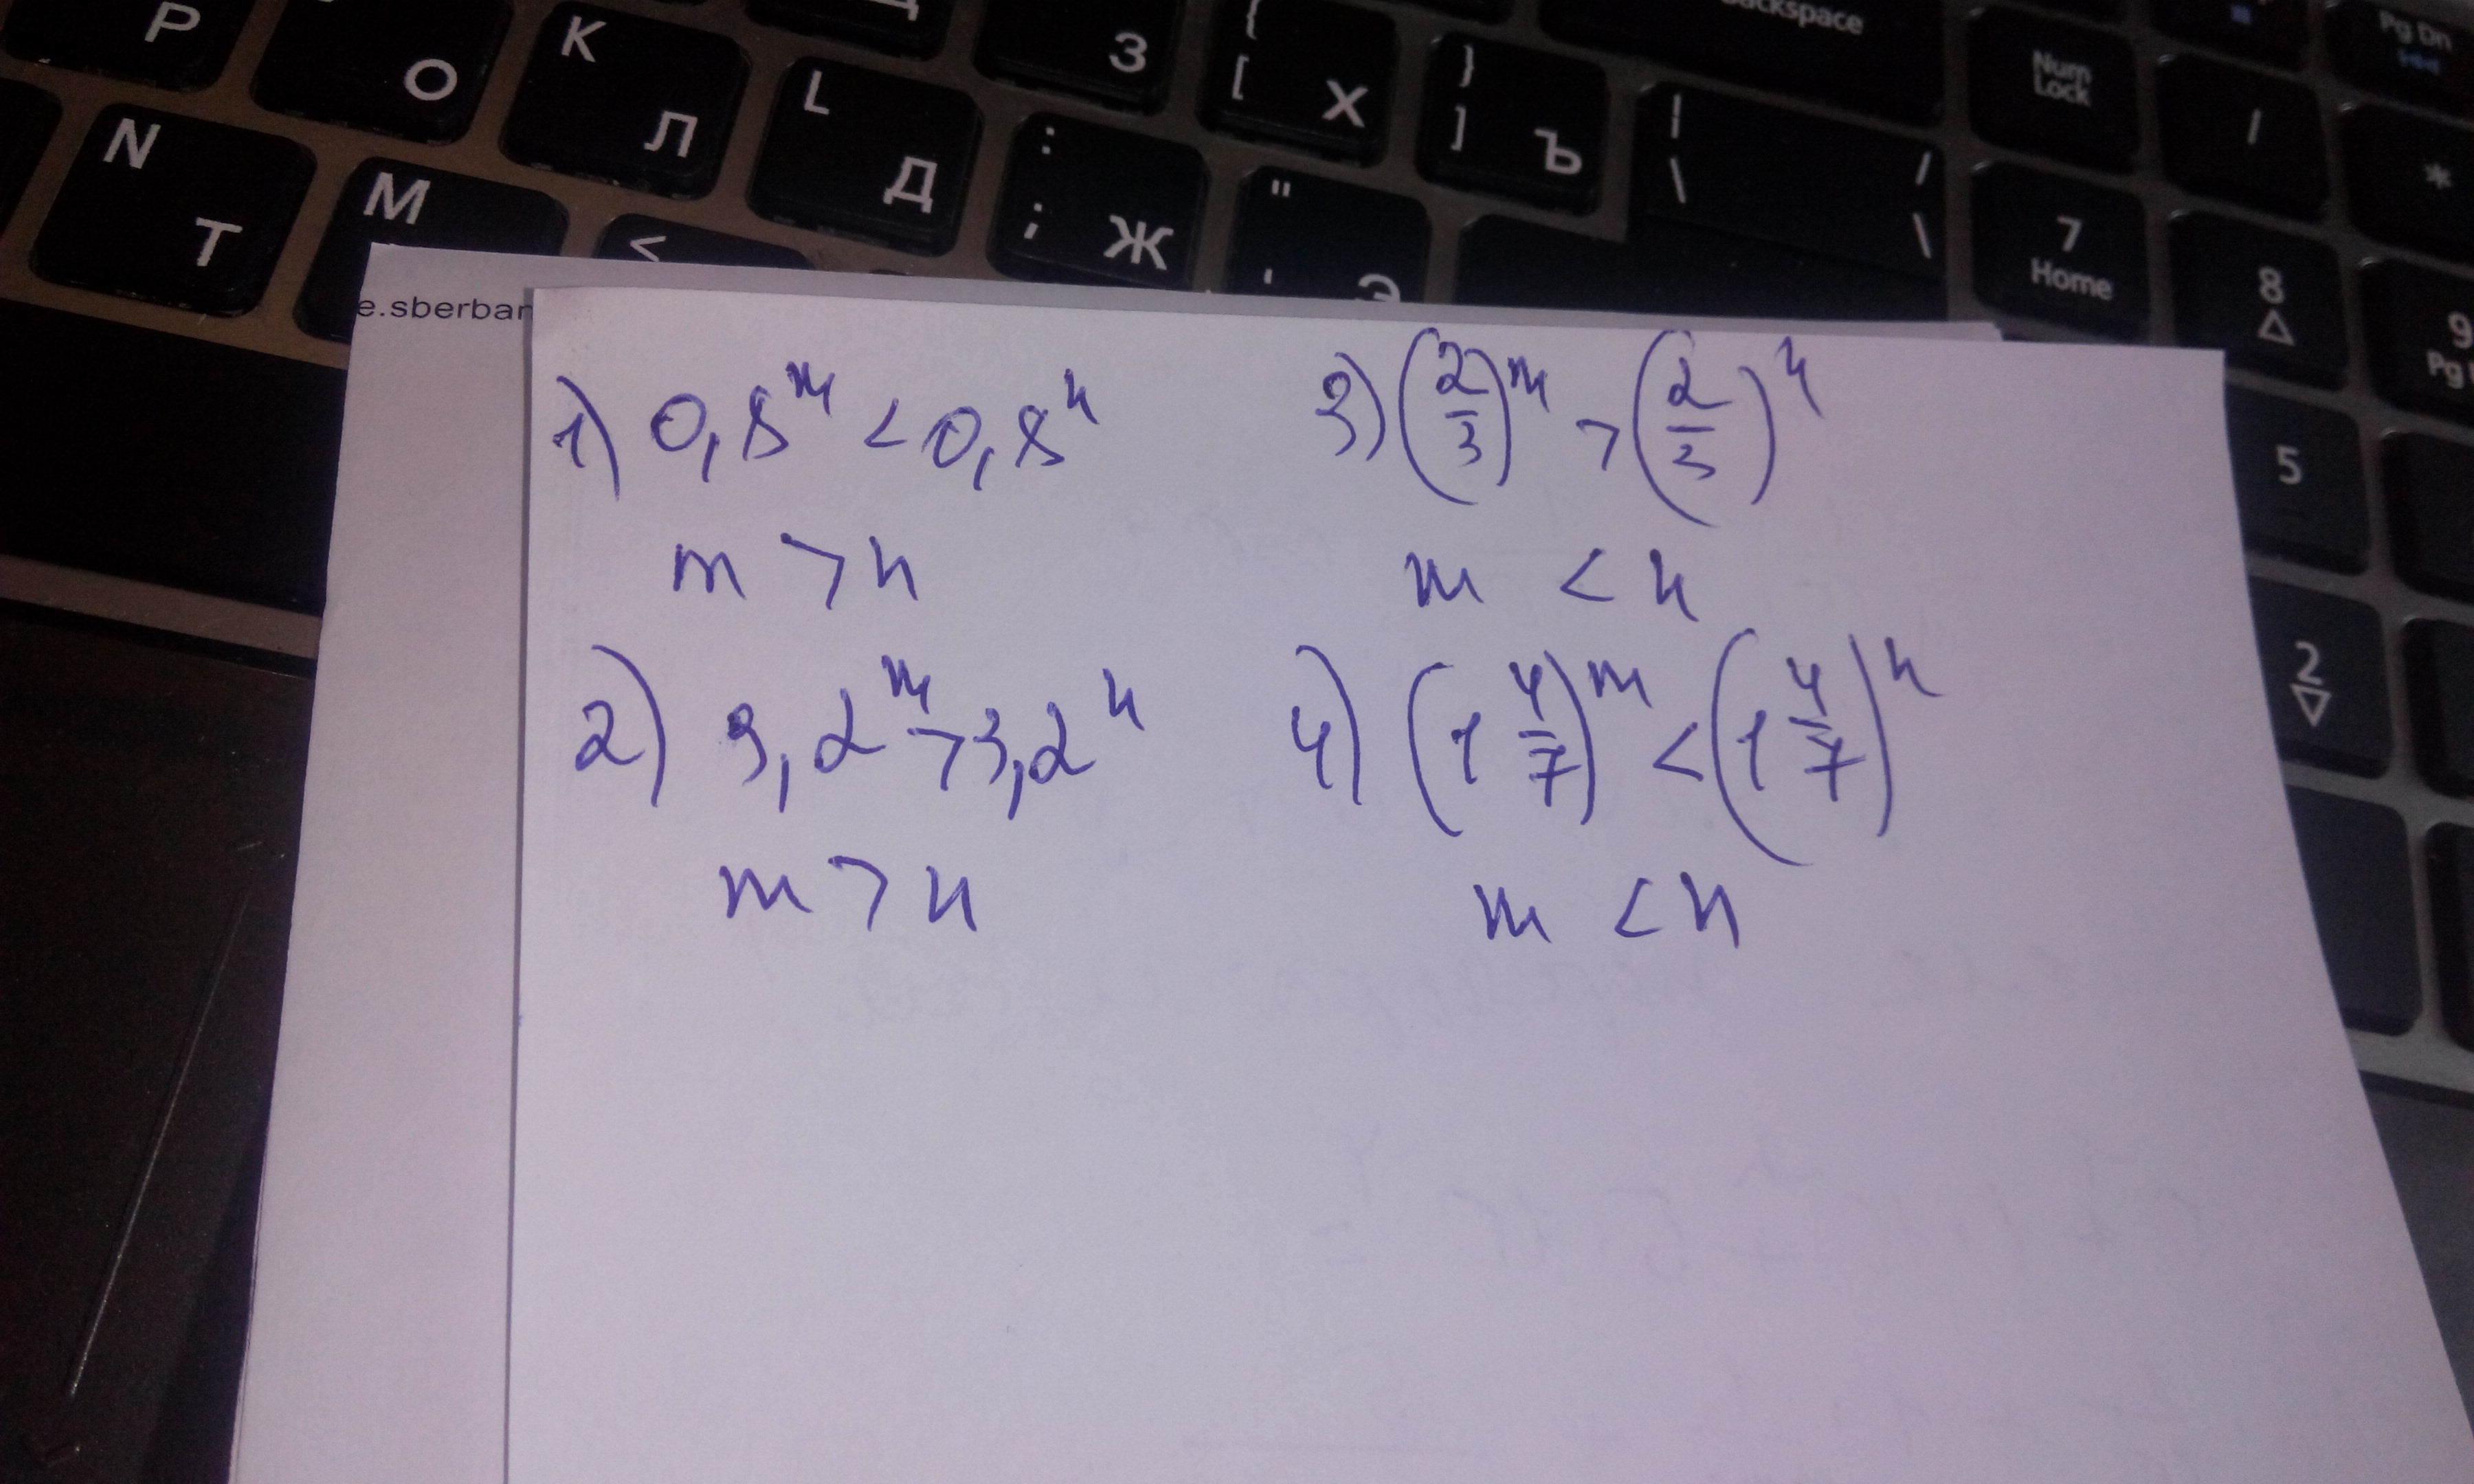 P
О
K
Л
L
Д
:
;
Ж
З
{
[
Х
}
]
Ъ
"
'
Э
|
\
/
\
Backspace
Num
Lock
/
*
Pg Dn
7
Home
8
9
Pg
5
2
N
Т
M
<
e.sberban
1) 0,8^m < 0,8^n
m > n
2) 3,2^m > 3,2^n
m > n
3) (2/3)^m > (2/3)^n
m < n
4) (1 4/7)^m < (1 4/7)^n
m < n